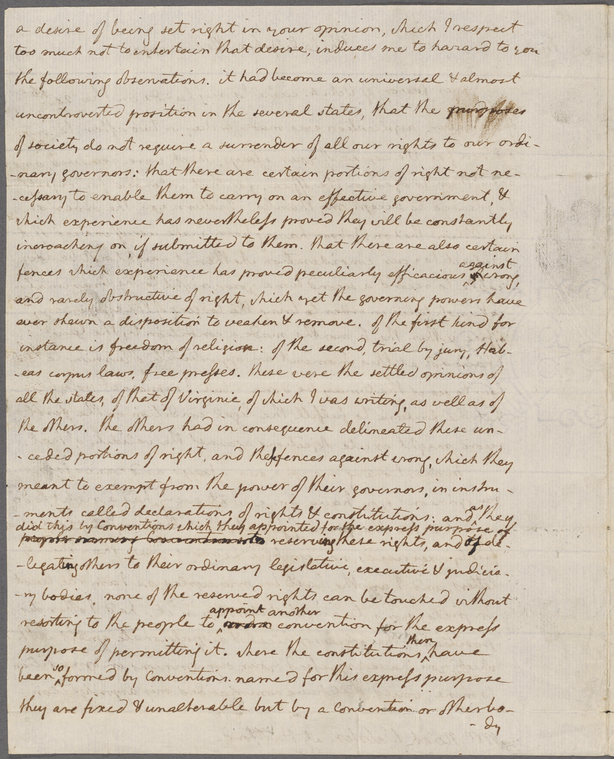 a desire of being set right in your opinion, which I respect
too much not to entertain that desire, induces me to hazard to you
the following observations. it had become an universal & almost
uncontroverted position in the several states, that the purposes
of society do not require a surrender of all our rights to our ordi-
-nary governors: that there are certain portions of right not ne-
-cessary to enable them to carry on an effective government, &
which experience has nevertheless proved they will be constantly
incroaching on, if submitted to them. that there are also certain
fences which experience has proved peculiarly efficacious against wrong,
and rarely obstructive of right, which yet the governing powers have
ever shewn a disposition to weaken & remove. of the first kind for
instance is freedom of religion: of the second, trial by jury, Hab-
-eas corpus laws, free presses. these were the settled opinions of
all the states, of that of Virginia, of which I was writing, as well as of
the others. the others had in consequence delineated these un-
-ceded portions of right, and these fences against wrong, which they
meant to exempt from the power of their governors, in instru-
-ments called declarations of rights & constitutions; and as they
did this by Conventions which they appointed for the express purpose of
reserving these rights, and of de-
-legating others to their ordinary legislative, executive & judicia-
-ry bodies, none of the reserved rights can be touched without
resorting to the people to appoint another convention for the express
purpose of permitting it. where the constitutions then have
been so formed by Conventions named for this express purpose
they are fixed & unalterable but by a Convention or other bo-
-dy